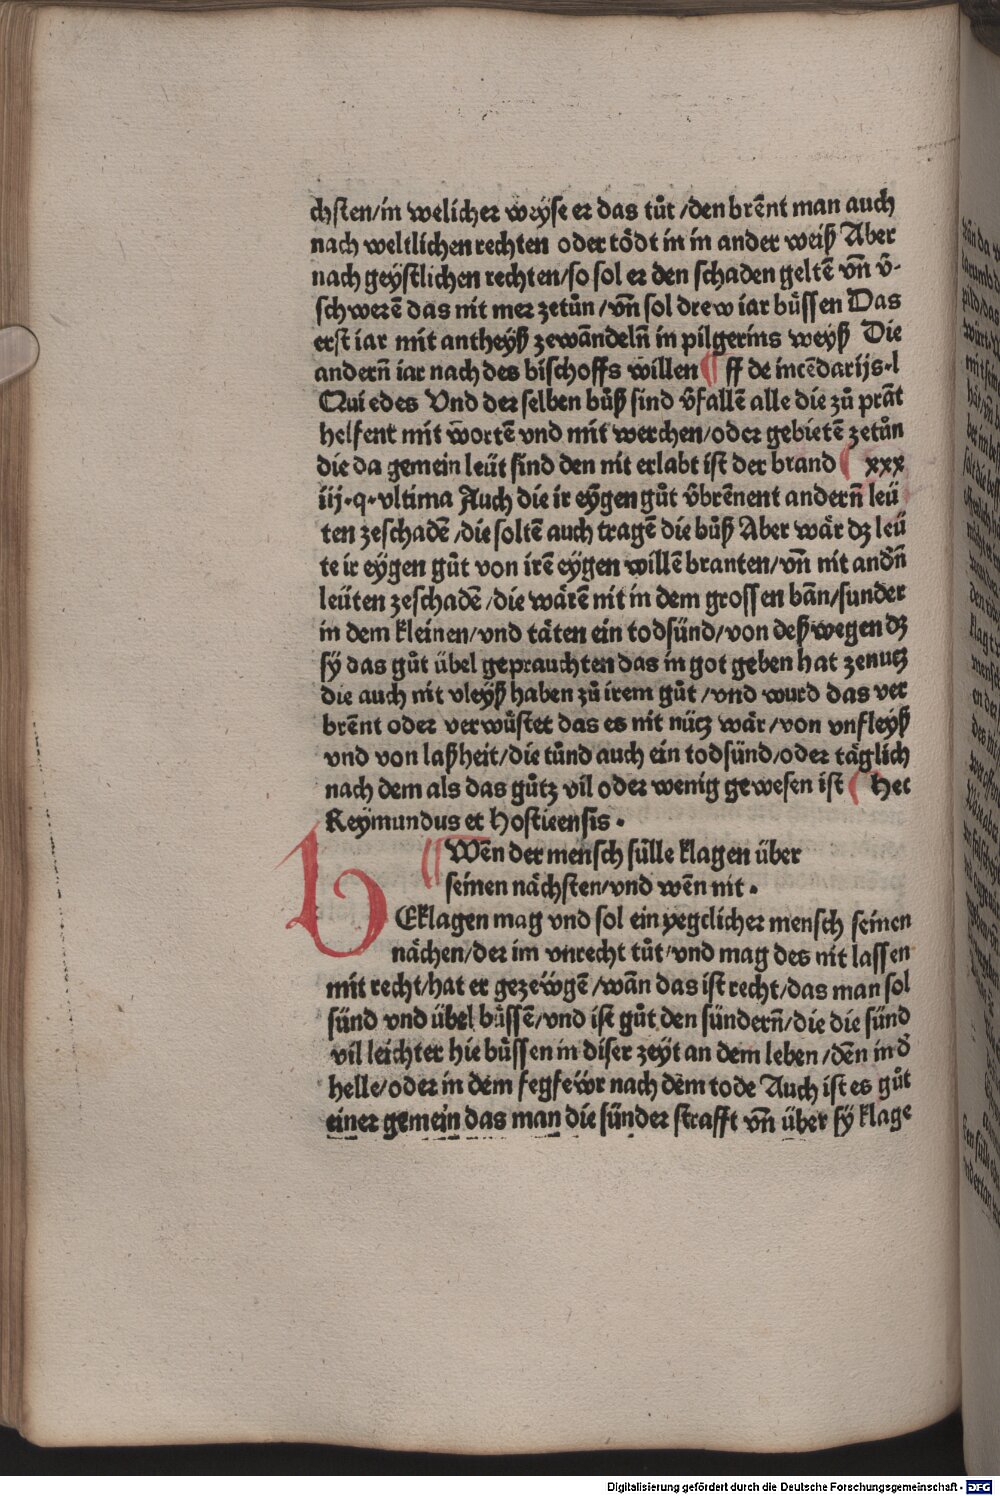 chsten/in welicher weyse er das tůt /den brēnt man auch
nach weltlichen rechten oder tödt in in ander weiß Aber
nach geystlichen rechten/so sol er den schaden geltē vn̄ v̄-
schwerē das nit mer zetůn/vn̄ sol drew iar bůssen Das
erst iar mit antheyß zewandeln̄ in pilgerins weyß Die
andern̄ iar nach des bischoffs willen ¶ ff de incēdarijs·l
Qui edes Vnd der selben bůß sind v̄fallē alle die zů prāt
helfent mit wortē vnd mit werchen/oder gebietē zetůn
die da gemein leüt sind den nit erlabt ist der brand ¶ xxx
iij·q·vltima Auch die ir eygen gůt v̄brēnent andern̄ leü
ten zeschadē /die soltē auch tragē die bůß Aber wär dz leü
te ir eygen gůt von irē eygen willē branten/vn̄ nit andn̄
leüten zeschadē /die wärē nit in dem grossen bān/sunder
in dem kleinen/vnd täten ein todsünd/von deß wegen dz
sy das gůt übel geprauchten das in got geben hat zenutz
die auch nit vleyß haben zů irem gůt /vnd wurd das ver
brēnt oder verwůstet das es nit nütz wär/von vnfleyß
vnd von laßheit/die tůnd auch ein todsünd/oder täglich
nach dem als das gůtz vil oder wenig gewesen ist ¶ Hec
Reymundus et Hostieensis·
¶ Wēn der mensch sülle klagen über
seinen nächsten/vnd wēn nit·
BEklagen mag vnd sol ein yegclicher mensch seinen
nächen/der im vnrecht tůt/vnd mag des nit lassen
mit recht/hat er gezewgē /wān das ist recht/das man sol
sünd vnd übel bůssē/vnd ist gůt den sündern̄/die die sünd
vil leichter hie bůssen in diser zeyt an dem leben /dēn in d̄
helle/oder in dem fegfewr nach dem tode Auch ist es gůt
einer gemein das man die sünder strafft vn̄ über sy klage
Digitalisierung gefördert durch die Deutsche Forschungsgemeinschaft - DFG